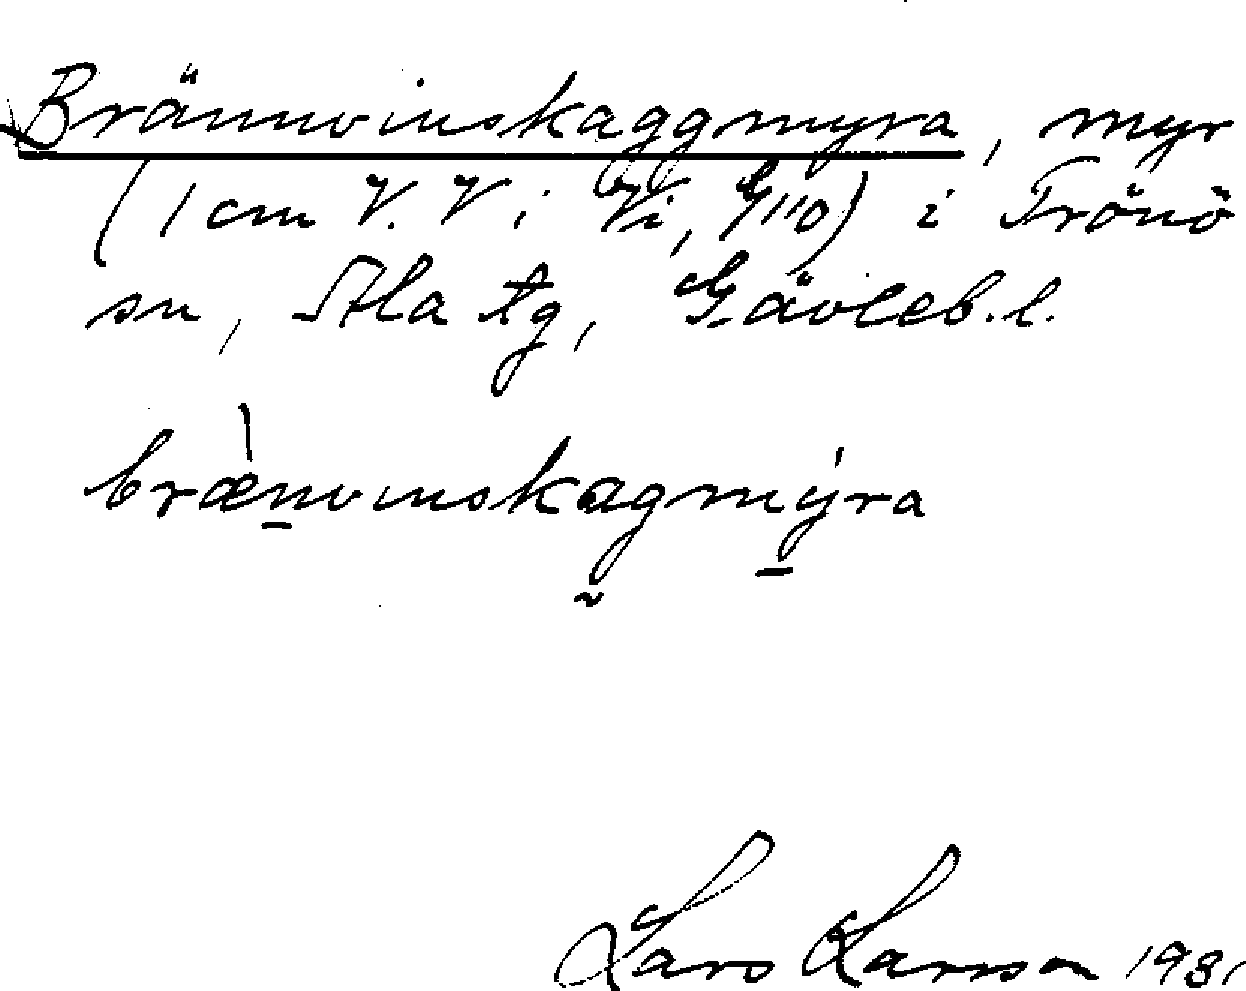 Brännvinskaggmyra, myr
(1 cm V. V i Vi, G110) i Trönö
sn, Ala tg, Gävleb.l.
brænvinskagmýra
Lars Larsson 1931